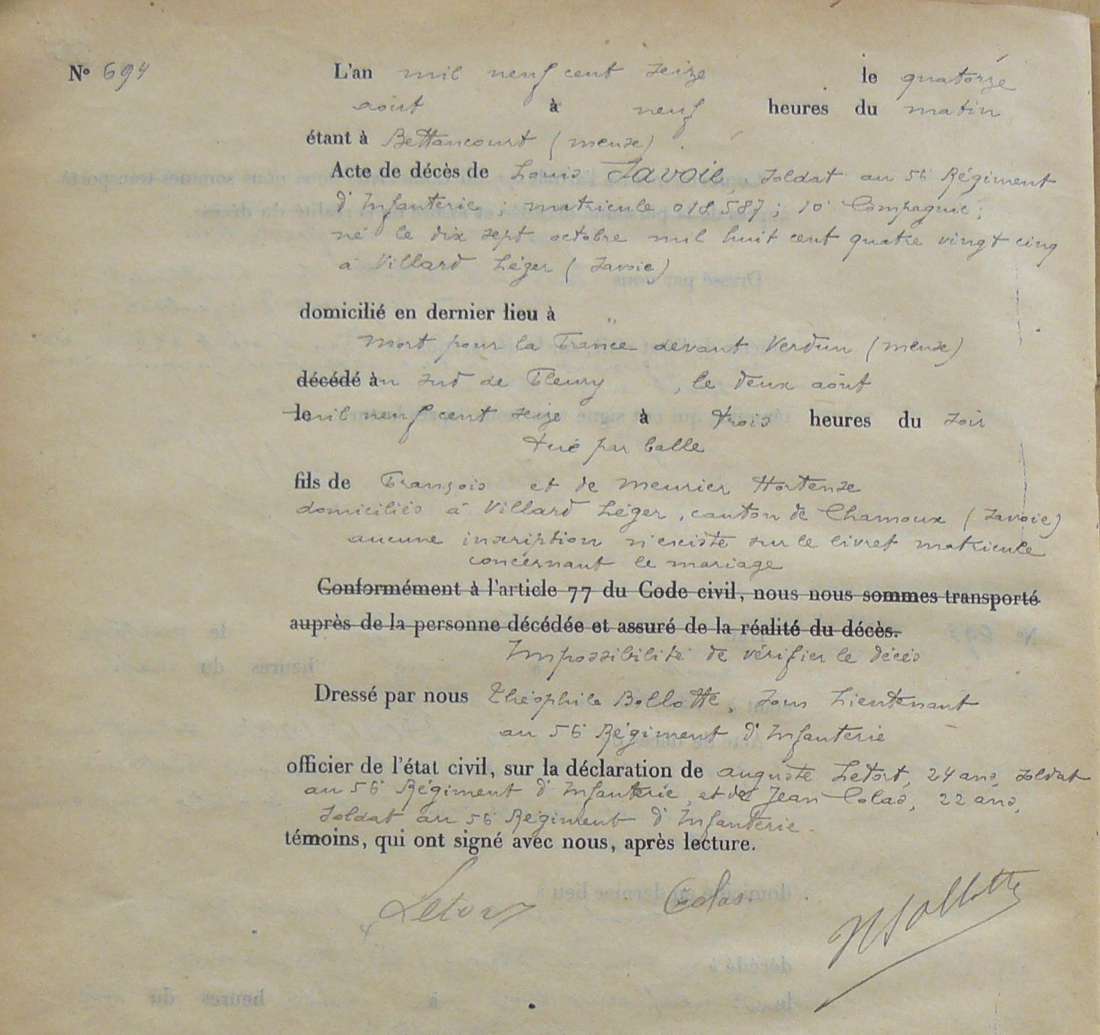 N° 694
L'an mil neuf cent seize le quatorze
août à neuf heures du matin
étant à Bettancourt (meuse).
Acte de décès de Louis Savoie, Soldat au 56 Régiment
d'Infanterie ; matricule 018.587 ; 10 Compagnie ;
né le dix sept octobre mil huit cent quatre vingt cinq
à Villard Léger (Savoie)
domicilié en dernier lieu à
Mort pour la France devant Verdun (meuse)
décédé au sud de Fleury, le deux août
le mil neuf cent seize à trois heures du soir
tué par balle
fils de François et de Meurier Hortense
domiciliés à Villard Léger, canton de Chamoux (Savoie)
aucune inscription n'existe sur le livret matricule
concernant le mariage
Conformément à l'article 77 du Code civil, nous nous sommes transporté
auprès de la personne décédée et assuré de la réalité du décès.
Impossibilité de vérifier le décès
Dressé par nous Théophile Bollotte, Sous Lieutenant
au 56 Régiment d'Infanterie
officier de l'état civil, sur la déclaration de auguste Letort, 24 ans, Soldat
au 56 Régiment d'Infanterie, et de Jean Colas, 22 ans,
Soldat au 56 Régiment d'Infanterie.
témoins, qui ont signé avec nous, après lecture.
Letort Colas. Bollotte